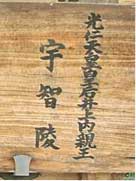 光仁天皇皇后井上内親王
宇智陵